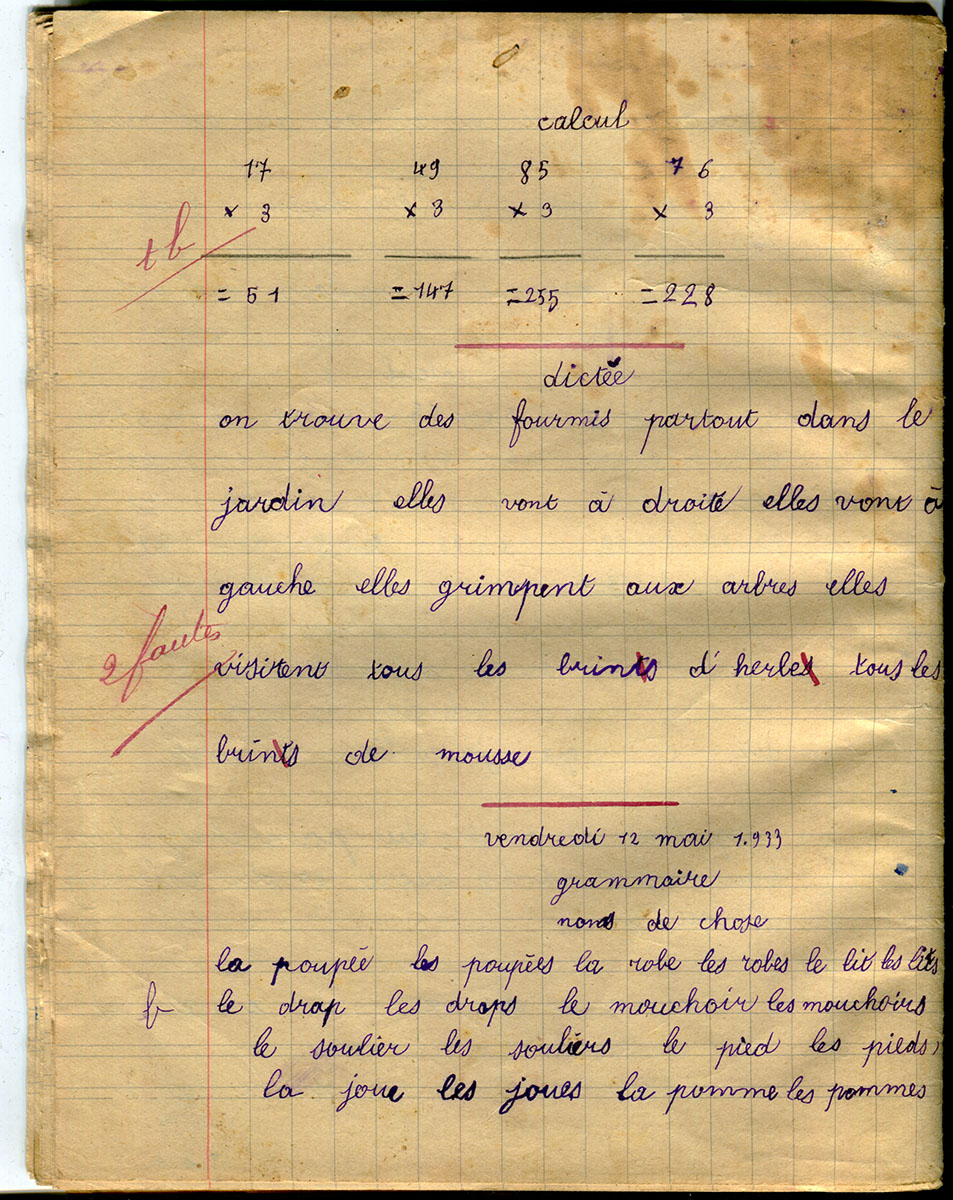 calcul
17 49 85 76
x 3 x 3 x 3 x 3
tb
= 51 = 147 = 255 = 228
dictée
on trouve des fourmis partout dans le
jardin elles vont à droite elles vont à
gauche elles grimpent aux arbres elles
2 fautes
visitent tous les brints d'herbes tous les
brints de mousse
vendredi 12 mai 1.933
grammaire
noms de chose
la poupée les poupées la robe les robes le lit les lits
b le drap les draps le mouchoir les mouchoirs
le soulier les souliers le pied les pieds,
la joue les joues la pomme les pommes